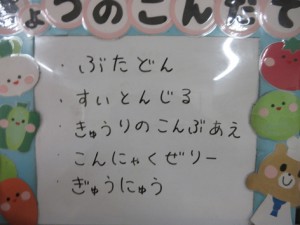 きょうのこんだて
・ぶたどん
・すいとんじる
・きゅうりのこんぶあえ
・こんにゃくぜりー
・ぎゅうにゅう